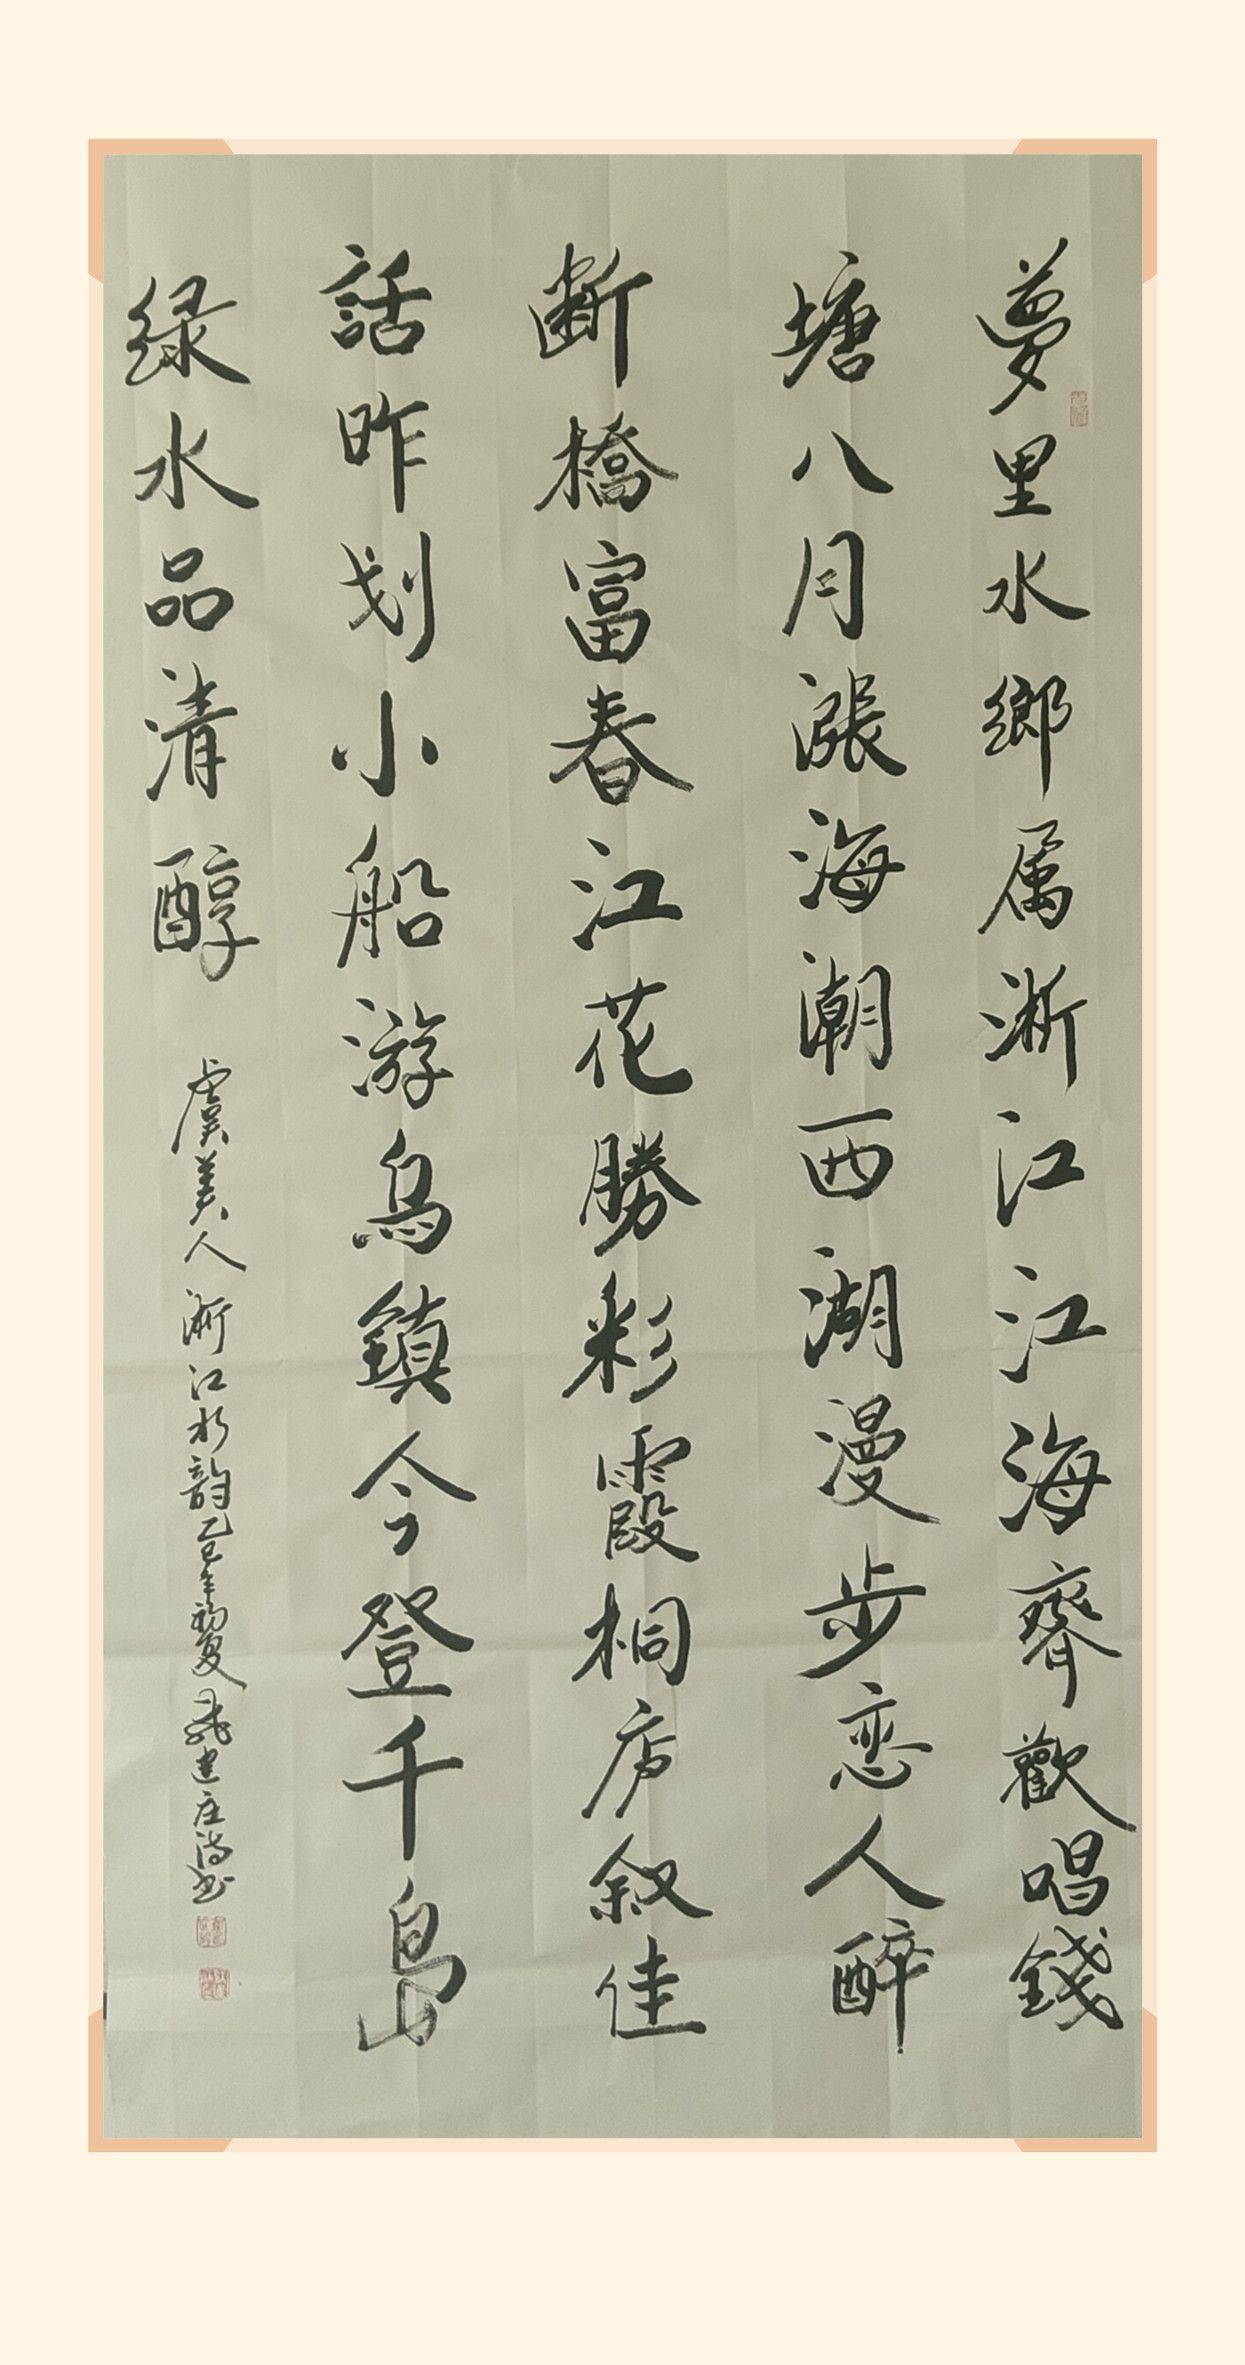 夢里水鄉属浙江江海齊歡唱錢
塘八月漲海潮西湖漫步恋人醉
断橋富春江花勝彩霞桐庐叙佳
話昨划小船游烏鎮今登千島
绿水品清醇
虞美人浙江水韵乙巳年初夏建庄诗书